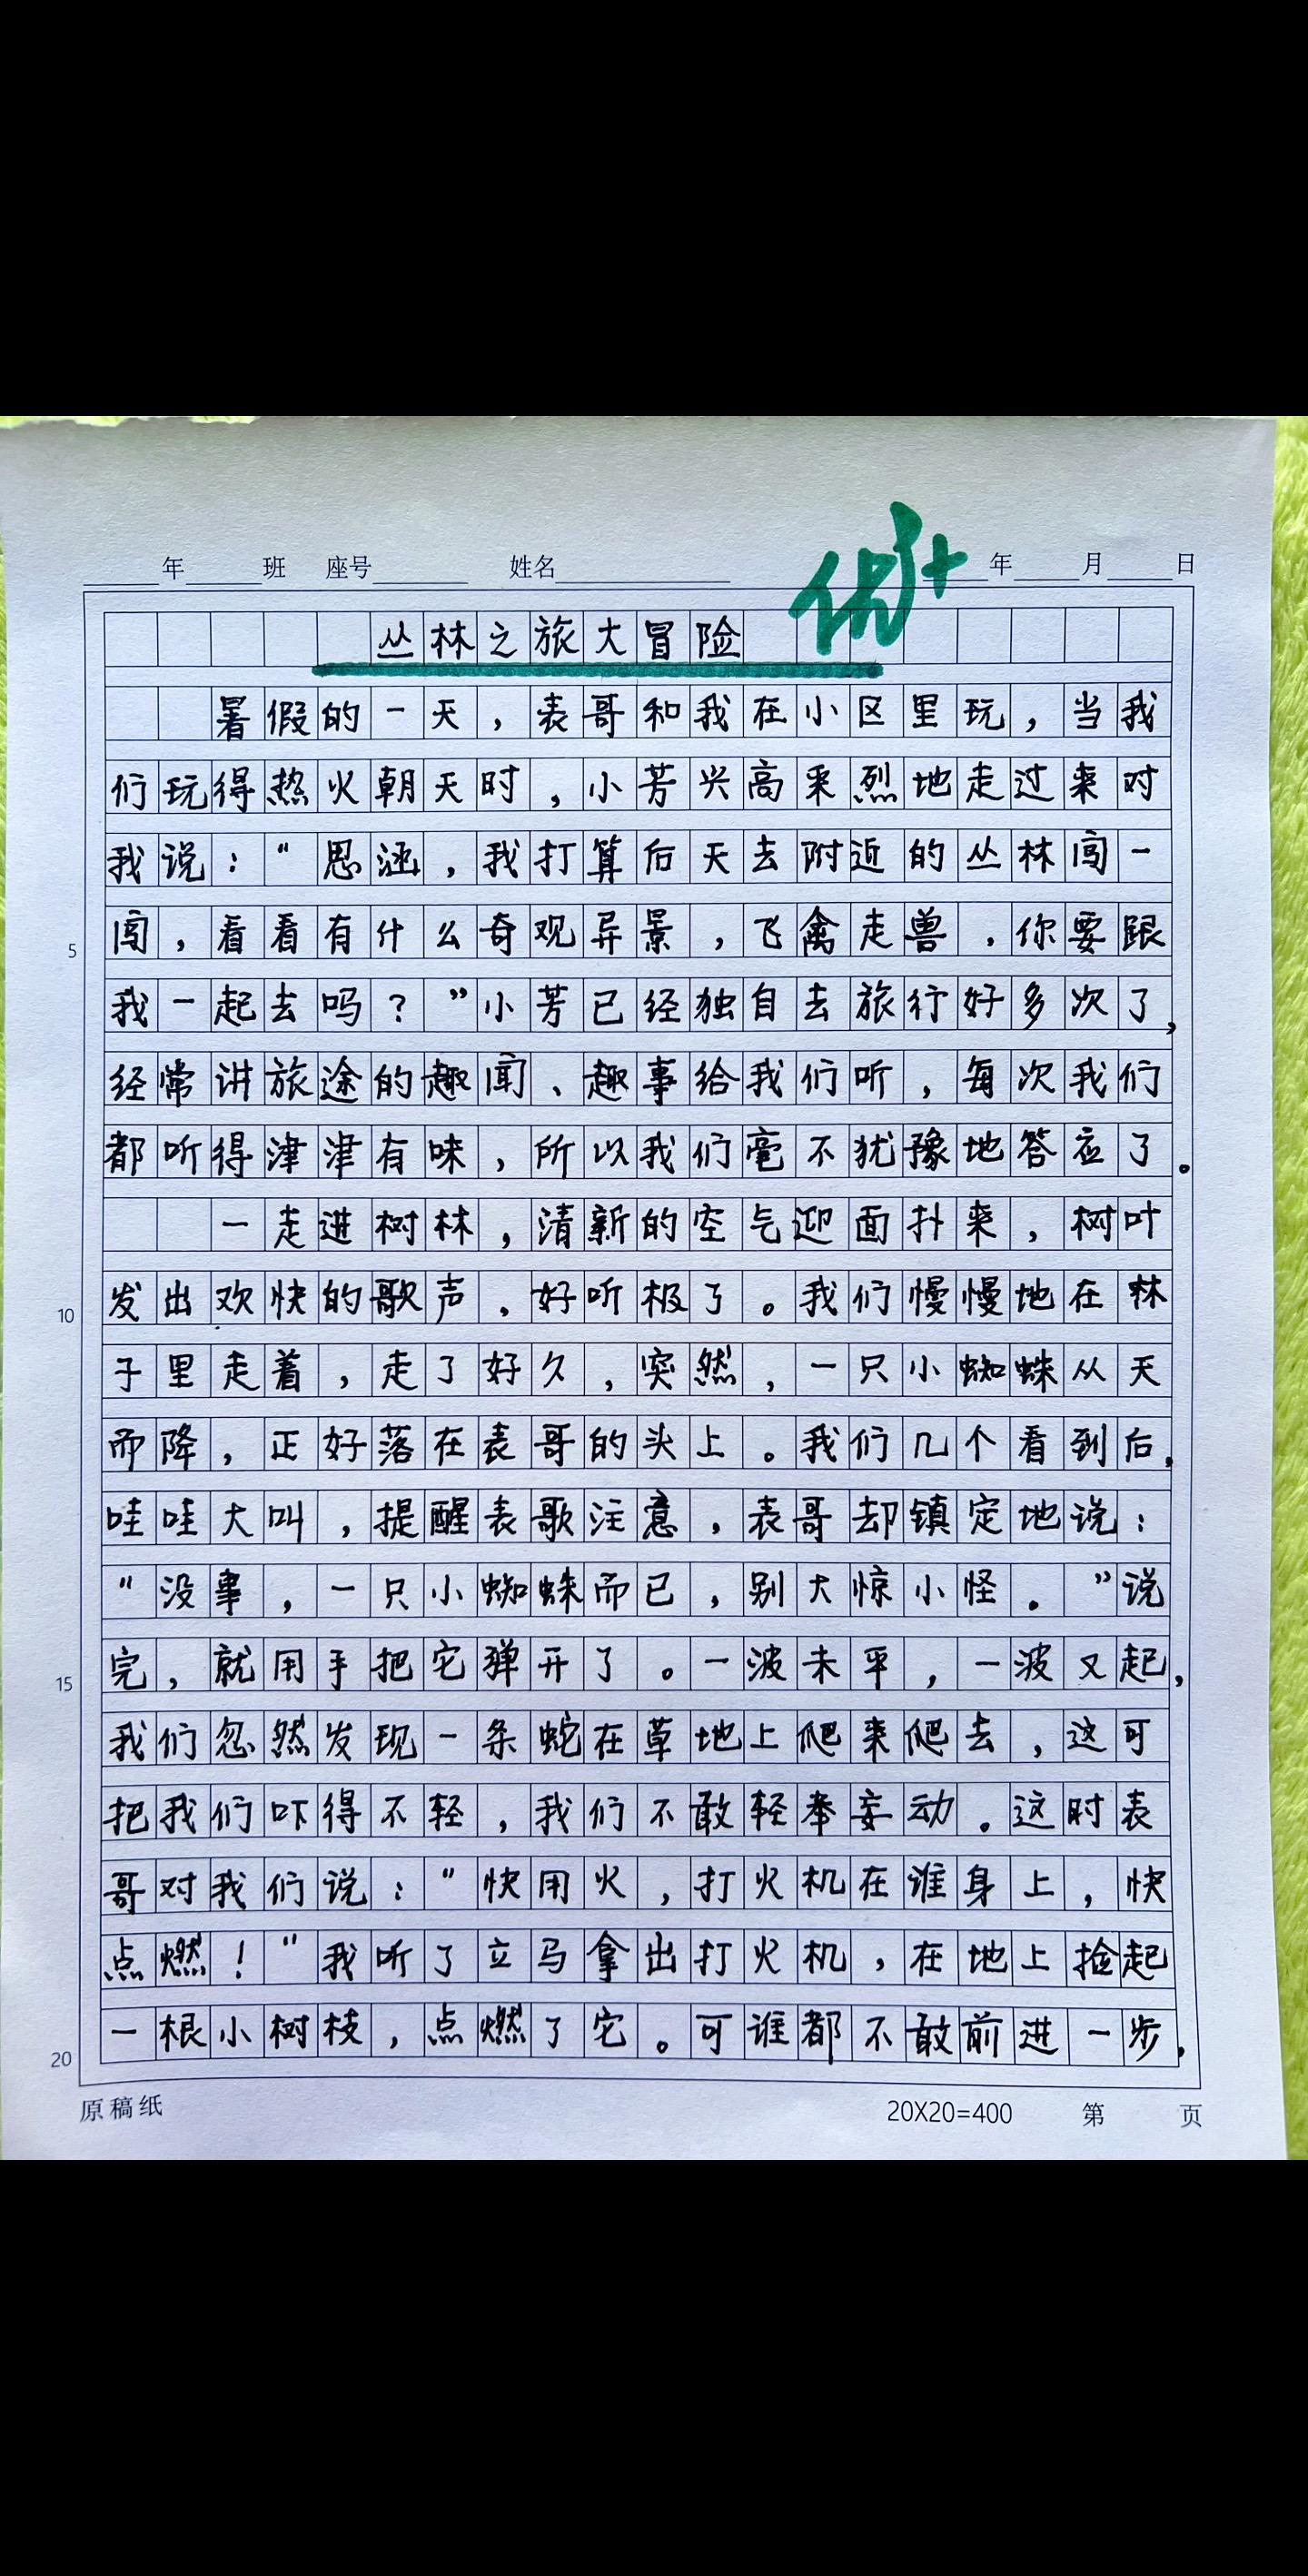 年 班 座号 姓名 年 月 日
优+
丛林之旅大冒险
暑假的一天，表哥和我在小区里玩，当我
们玩得热火朝天时，小芳兴高采烈地走过来对
我说：“思涵，我打算后天去附近的丛林闯一
闯，看看有什么奇观异景，飞禽走兽，你要跟
5
我一起去吗？”小芳已经独自去旅行好多次了，
经常讲旅途的趣闻、趣事给我们听，每次我们
都听得津津有味，所以我们毫不犹豫地答应了。
一走进树林，清新的空气迎面扑来，树叶
发出欢快的歌声，好听极了。我们慢慢地在林
10
子里走着，走了好久，突然，一只小蜘蛛从天
而降，正好落在表哥的头上。我们几个看到后，
哇哇大叫，提醒表歌注意，表哥却镇定地说：
“没事，一只小蜘蛛而已，别大惊小怪。”说
完，就用手把它弹开了。一波未平，一波又起，
15
我们忽然发现一条蛇在草地上爬来爬去，这可
把我们吓得不轻，我们不敢轻举妄动。这时表
哥对我们说：“快用火，打火机在谁身上，快
点燃！”我听了立马拿出打火机，在地上捡起
一根小树枝，点燃了它。可谁都不敢前进一步，
20
原稿纸 20X20=400 第 页